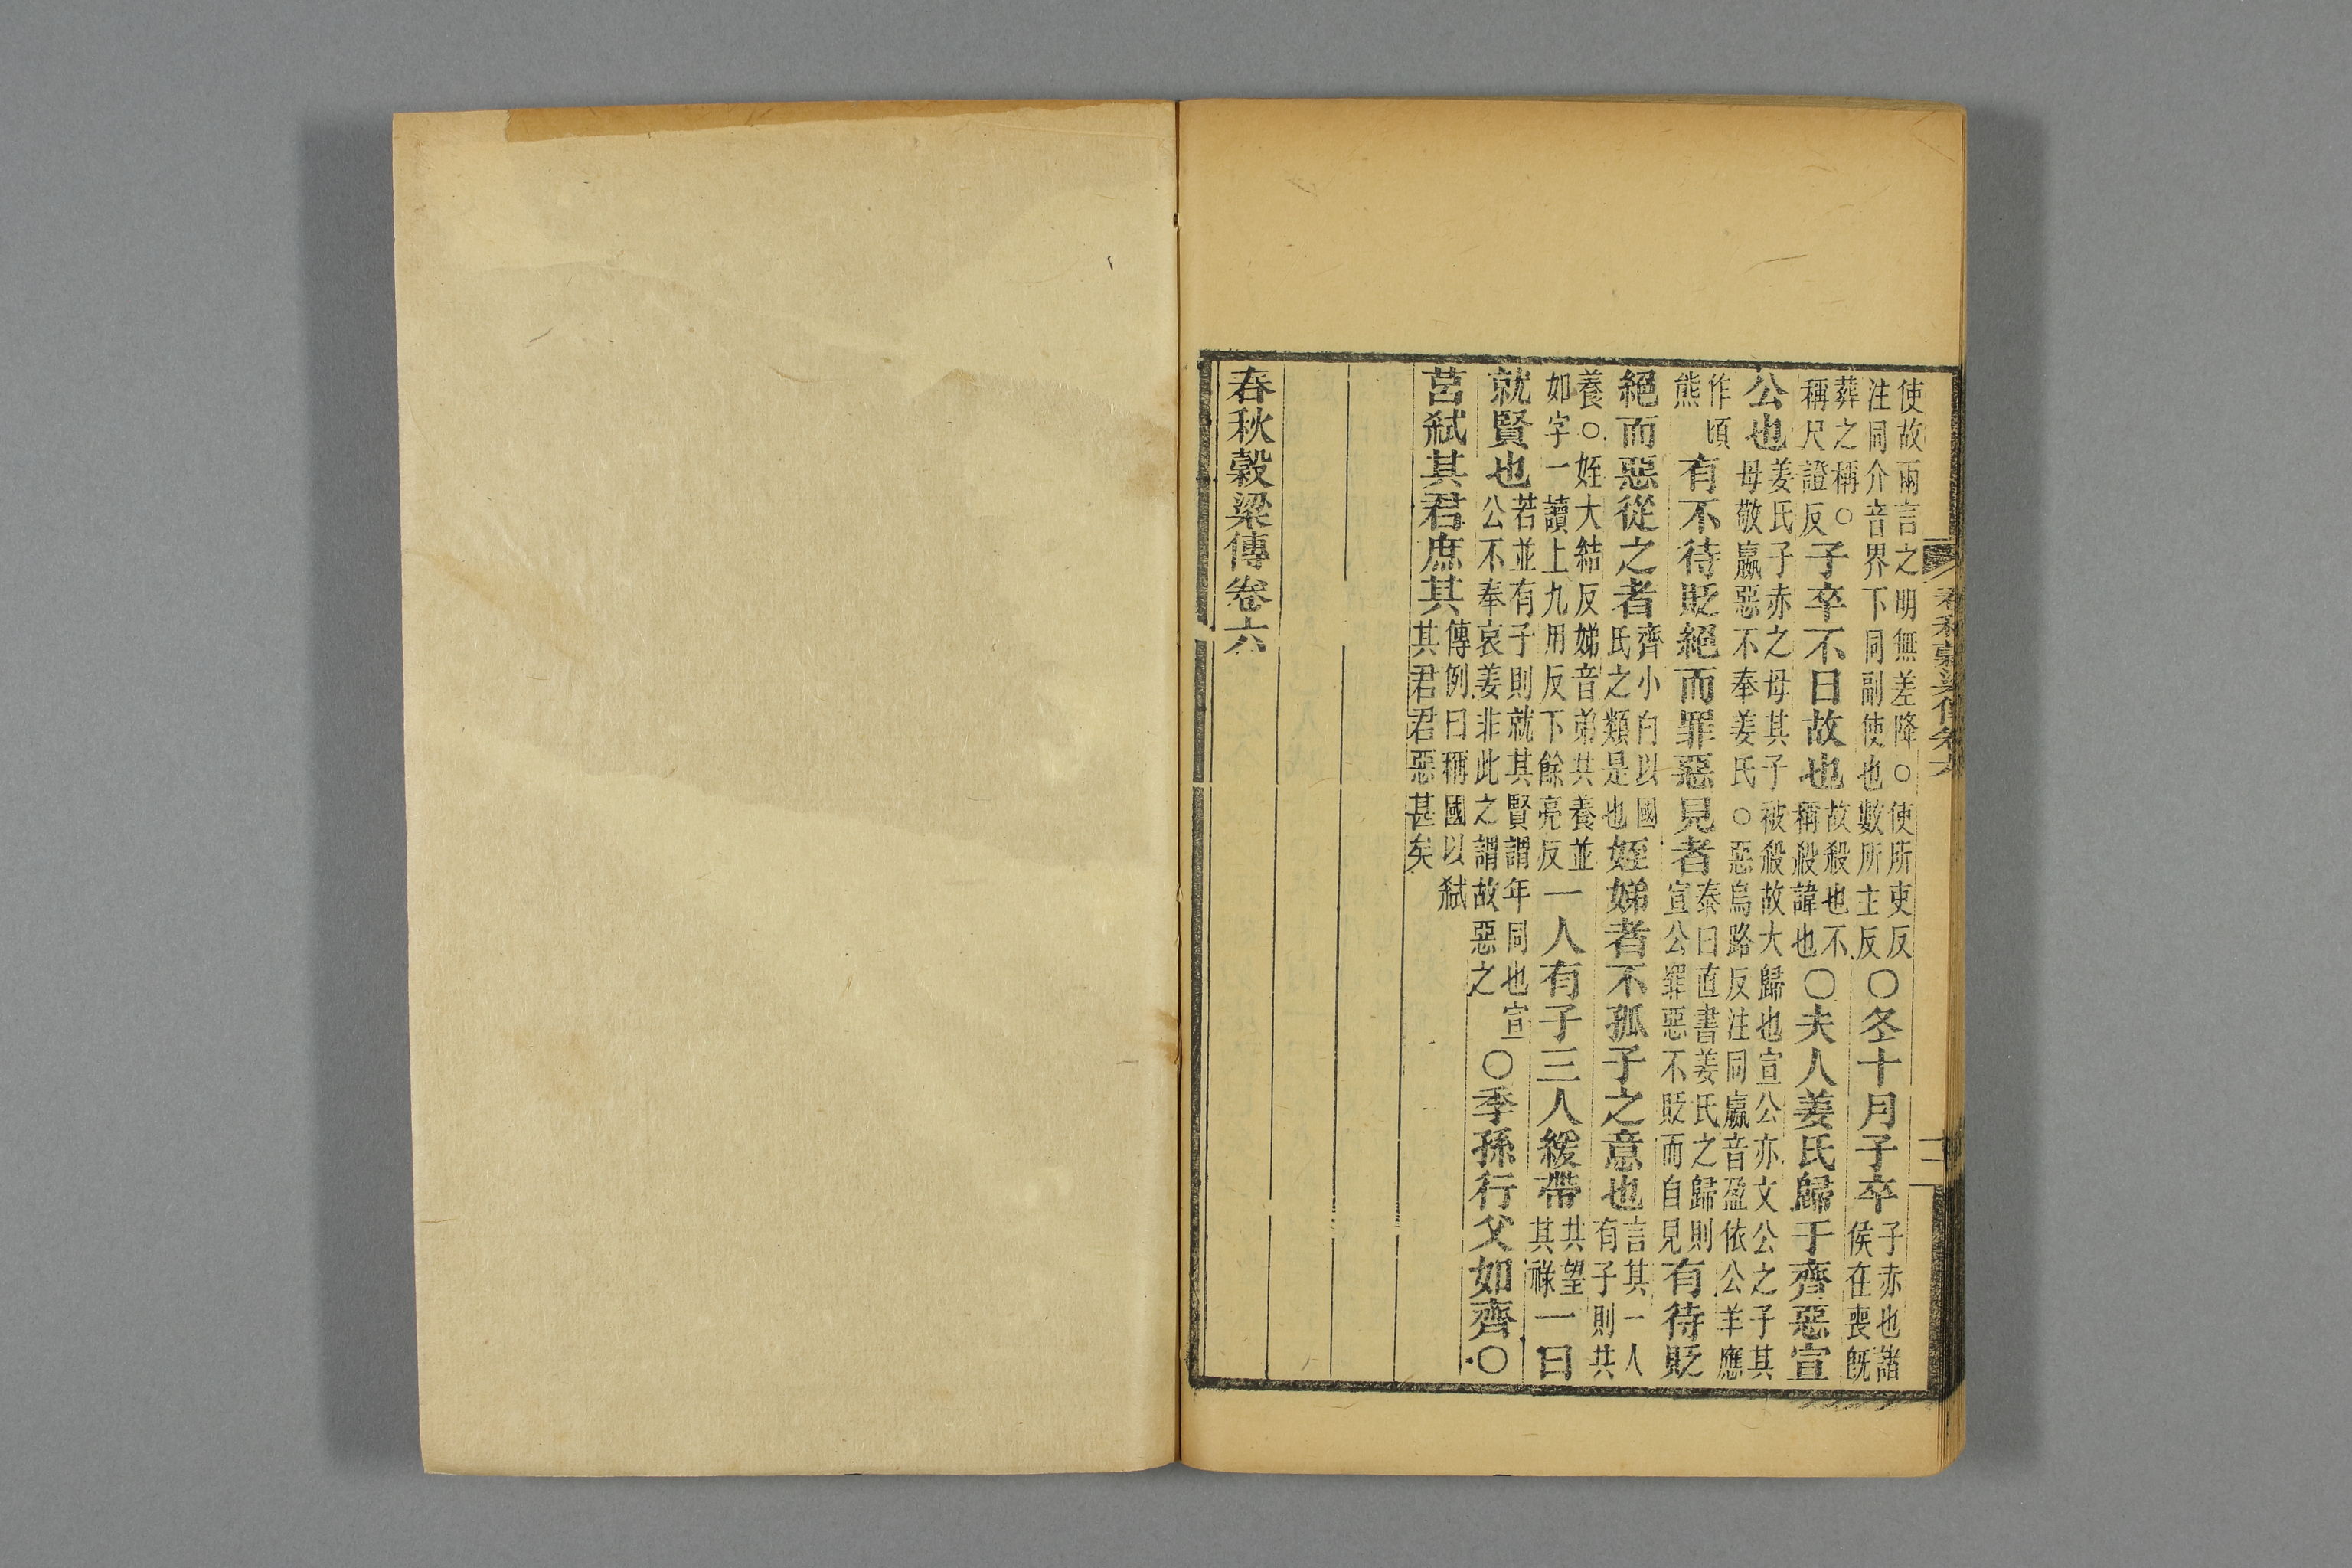 使故兩言之明無差降○使所吏反注同介音界下同副使也數所主反○冬十月子卒子赤也諸侯在喪既
葬之稱○稱尺證反子卒不日故也故殺也不稱殺諱也○夫人姜氏歸于齊惡宣
公也姜氏子赤之母其子被殺故大歸也宣公亦文公之子其母敬嬴惡不奉姜氏○惡烏路反注同嬴音盈依公羊應
作頃熊有不待貶絕而罪惡見者泰曰直書姜氏之歸則宣公罪惡不貶而自見有待貶
絕而惡從之者齊小白以國氏之類是也姪娣者不孤子之意也言其一人有子則共
養○姪大結反娣音弟共養並如字一讀上九用反下餘亮反一人有子三人緩帶共望其祿一曰
就賢也若並有子則就其賢謂年同也宣公不奉哀姜非此之謂故惡之○季孫行父如齊○
莒弒其君庶其傳例曰稱國以弒其君君惡甚矣
春秋穀梁傳卷六